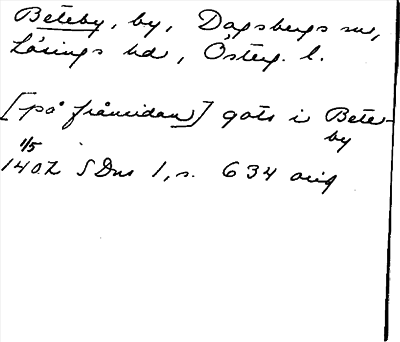 Beteby, by, Dagsbergs sn,
Lösings hd, Österg. l.
[på frånsidan] gots i Bete-
by
1/5
1402 SDns 1, s. 634 orig